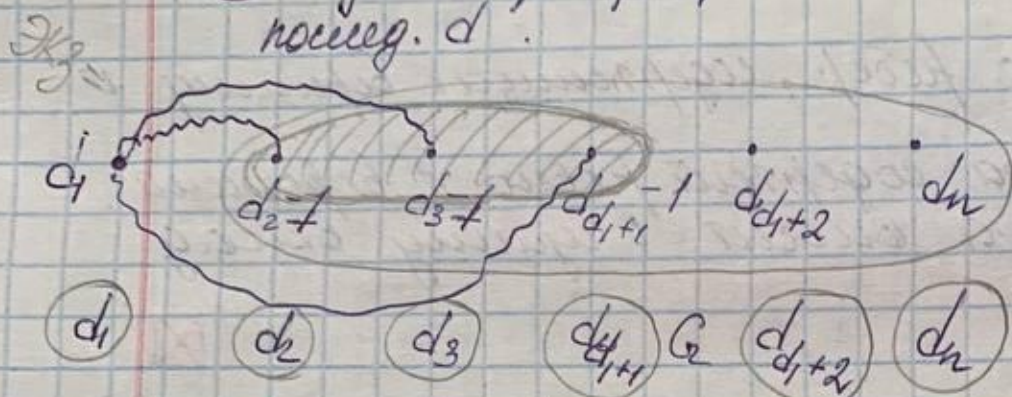 послед. d'.
ЭКЗ
d₁ d₂-1 d₃-1 d_{d₁+1}-1 d_{d₁+2} dₙ
d₁ d₂ d₃ d_{d₁+1} G d_{d₁+2} dₙ